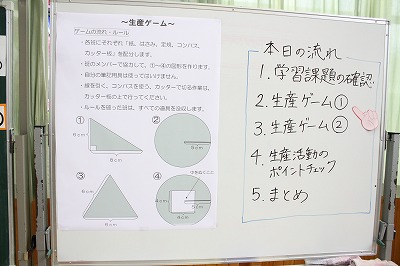 ～生産ゲーム～
ゲームの流れ・ルール
・各班にそれぞれ「紙、はさみ、定規、コンパス、
カッター板」を配分します。
・班のメンバーで協力して、①～④の図形を作ります。
・自分の筆記用具は使ってはいけません。
・線を引く、コンパスを使う、カッターで切る作業は、
カッター板の上で行ってください。
・ルールを破った班は、すべての道具を没収します。
①
6cm
②
5cm
③
6cm
6cm
④
4cm
4cm
5cm
本日の流れ
1. 学習課題の確認
2. 生産ゲーム①
3. 生産ゲーム②
4. 生産活動の
ポイントチェック
5. まとめ